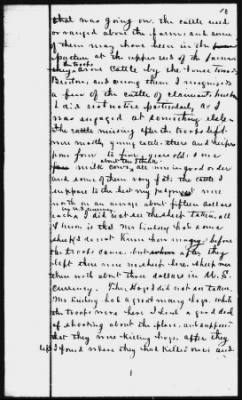 18
that was going on. the cattle used
or ranged about the farm, and some
of them may have been in the
pasture at the upper end of the farm
the troops
drove cattle by the
Parsons, and among them I recognized
a few of the cattle of claimants but
I did not notice particularly as I
was engaged at something else.
The cattle missing after the troops left
were mostly young cattle, steers and heifers
from four to five years old. Some
about the stable.
milk cows, all were in good order
and some of them very fat. the cattle I
suppose to the best my judgment were
worth on an average about fifteen dollars
in U.S. Currency
each. I did not see the sheep taken, all
I know is that Mr Lindsey had some
sheep do not know how many before
the troops came. but after they
left there were no sheep here. sheep were
then worth about three dollars in U.S.
Currency. The Hogs I did not see taken.
Mr Lindsey had a great many hogs. while
the troops were here I heard a good deal
of shooting about the place, and suppose
that they were killing hogs, after they
left I found where they had killed ones and